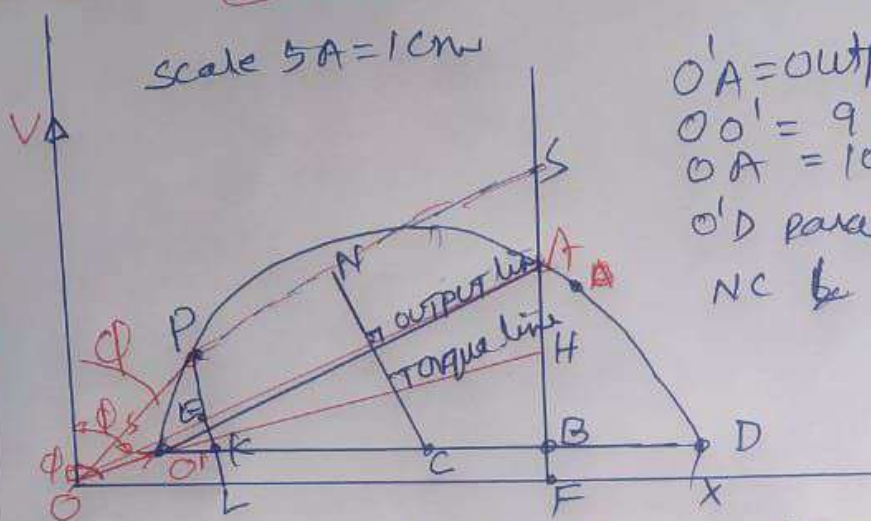 scale 5A = 1cm
O'A = OUTP
OO' = 9
OA = 10
O'D para
NC
V
S
N
A
OUTPUT line
P
TORque line
H
φ
E
φs
φ
O' K
C
B
D
O
L
F
X